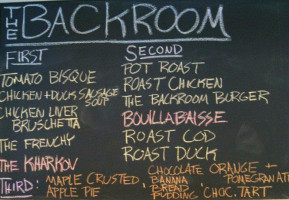 THE BACKROOM
FIRST
TOMATO BISQUE
CHICKEN + DUCK SAUSAGE SOUP
CHICKEN LIVER
BRUSCHETTA
THE FRENCHY
THE KHARKOV
SECOND
POT ROAST
ROAST CHICKEN
THE BACKROOM BURGER
BOUILLABAISSE
ROAST COD
ROAST DUCK
THIRD: MAPLE CRUSTED
APPLE PIE
BANANA
BREAD
PUDDING
CHOCOLATE ORANGE +
POMEGRANATE
CHOC. TART